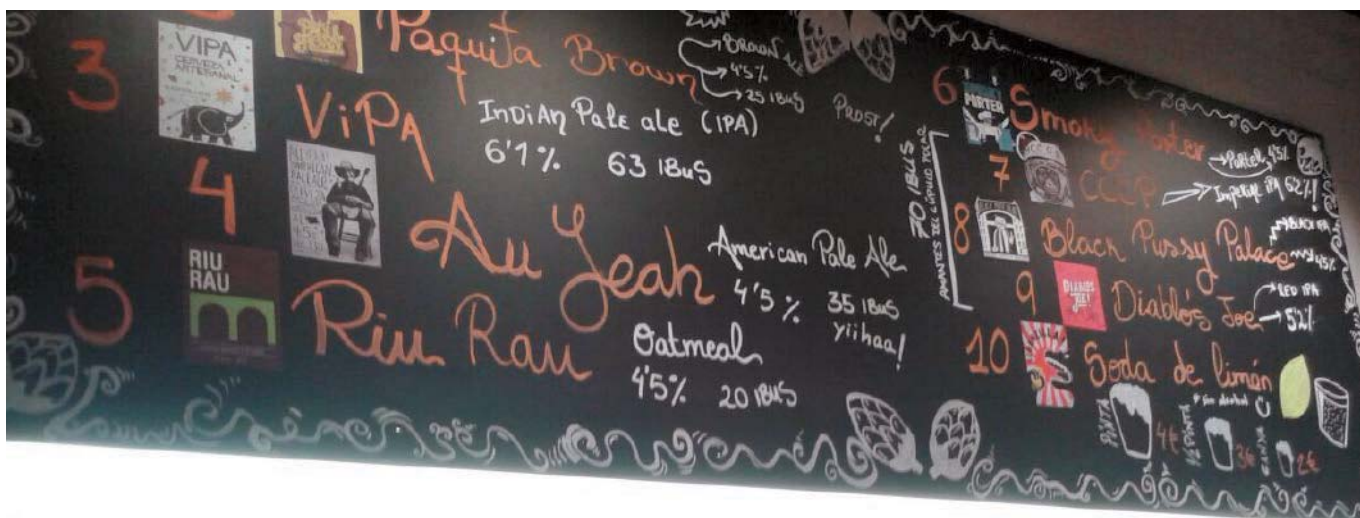 Paquita Brown
BROWN ALE
4'5%
25 IBUS
PROST!
3
VIPA
CERVEZA
ARTESANAL
ViPA
INDiAn PalE ale (IPA)
6'1% 63 IBuS
4
AMERICAN
PALE ALE
Au Yeah
American Pale Ale
4'5% 35 IBuS
yiihaa!
5
RIU
RAU
Riu Rau
Oatmeal
4'5% 20 IBUS
6
PORTER
Smoky Porter
Porter 4'5%
70 IBUS
AMANTES DEL LÚPULO TOCAR
7
CCCP
Imperial IPA 6'2%!
8
Black Pussy Palace
BLACK IPA
4'5%
9
DIABLOS
JOE!
Diablo's Joe
RED IPA
5'2%
10
Soda de limón
* Sin alcohol
PINTA
4€
1/2 PINTA
3€
2€